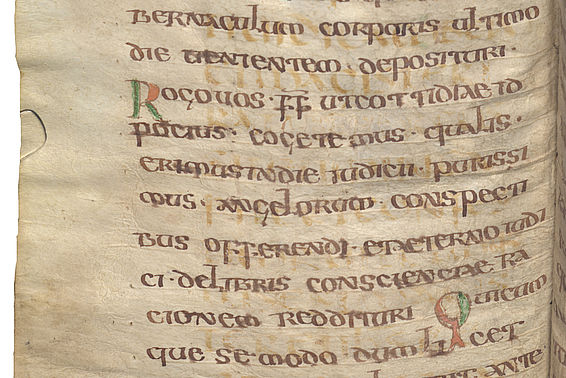 BERNACULUM CORPORIS ULTIMO
DIE UENIENTEM · DEPOSITURI ·
ROGO UOS · FF UT COTTIDIAE ID
POCIUS · COGETEMUS · QUALIS ·
ERIMUS IN DIE IUDICII · PURISSI
MUS · ANGELORUM · CONSPECTI
BUS OFFERENDI · ET AETERNO IUDI
CI · DE LIBRIS CONSCIENCIAE RA
CIONEM REDDITURI QUICUM
QUE SE MODO · DUM LICET
ANTE ·